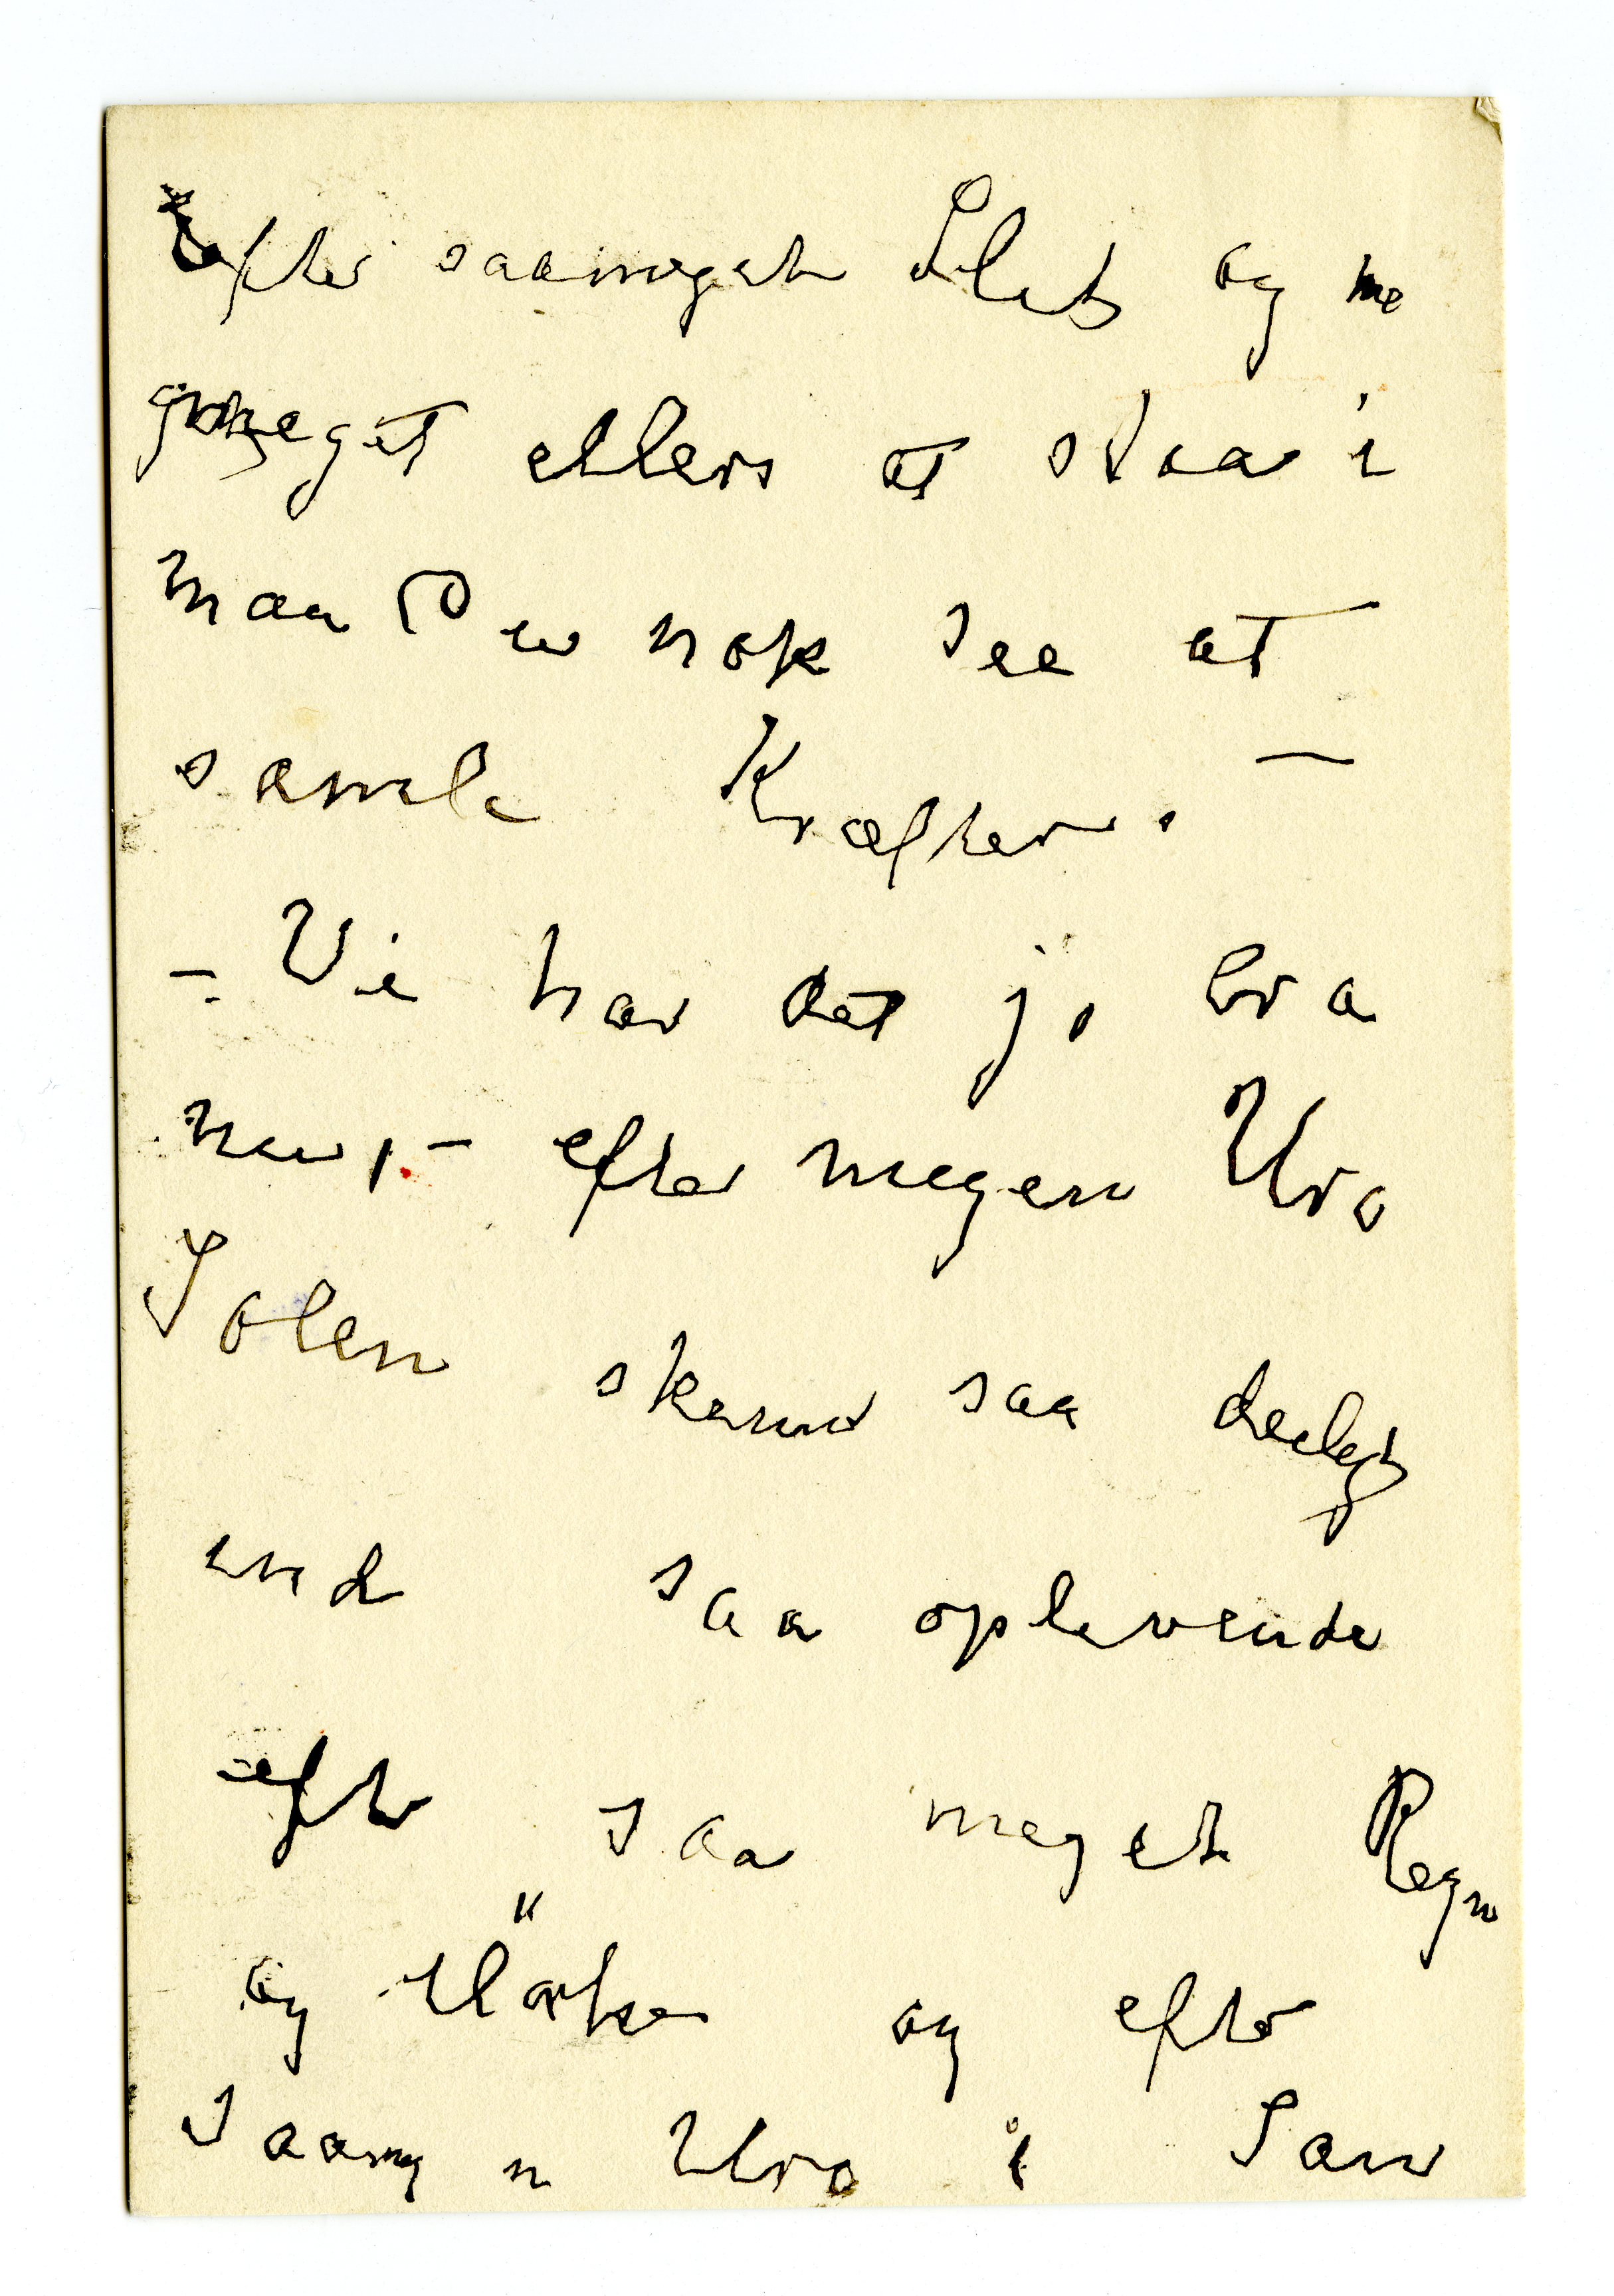 Efter saameget Slit og me
get eget ellers at staa i
maa Du nok see at
samle Kræfter. —
– Vi har det jo bra
nu, – efter megen Uro
Solen skinner saa deiligt
ind saa oplivende
efter saa meget Regn
og Mörke og efter
saamegen Uro i San